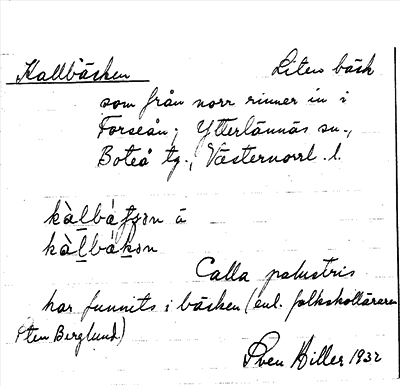 Kallbäcken Liten bäck
som från norr rinner in i
Forseån; Ytterlännäs sn.,
Boteå tg., Västernorrl. l.
kàlbátʃɔn å
kàlbákɔn
Calla palustris
har funnits i bäcken (enl. folkskolläraren
Sten Berglund)
Sven Hiller 1932